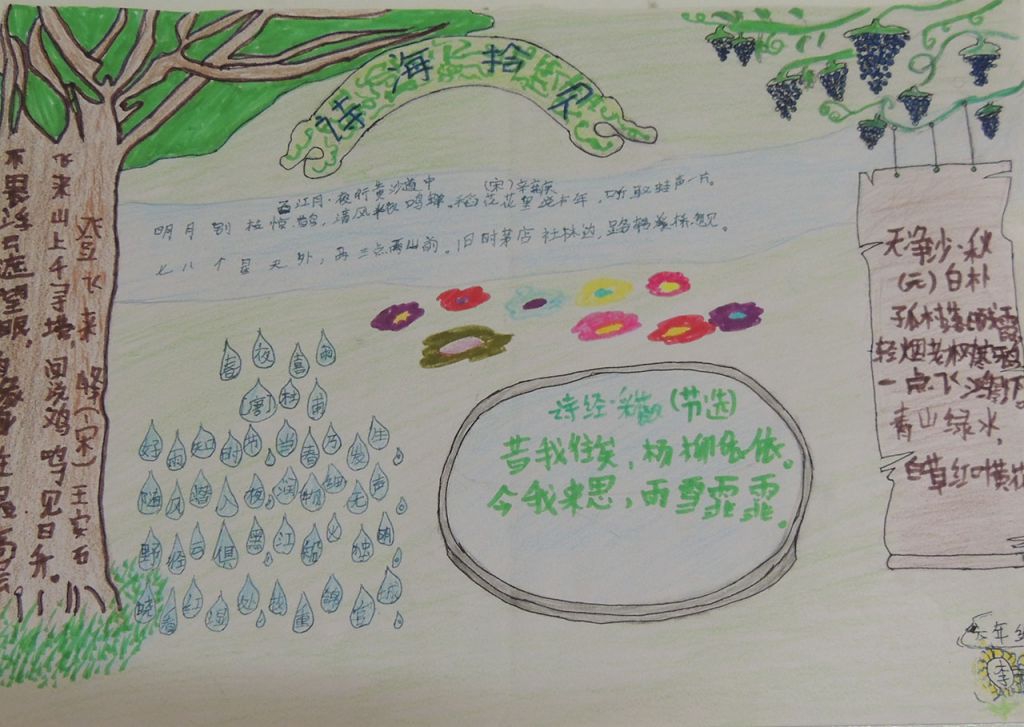 诗海拾贝
西江月·夜行黄沙道中 (宋)辛弃疾
明月别枝惊鹊,清风半夜鸣蝉。稻花花里说丰年,听取蛙声一片。
七八个星天外,两三点雨山前。旧时茅店社林边,路转溪桥忽见。
登飞来峰(宋)王安石
飞来山上千寻塔,闻说鸡鸣见日升。
不畏浮云遮望眼,自缘身在最高层
春夜喜雨
(唐)杜甫
好雨知时节,当春乃发生。
随风潜入夜,润物细无声。
野径云俱黑,江船火独明。
晓看红湿处,花重锦官城。
诗经·采薇(节选)
昔我往矣,杨柳依依。
今我来思,雨雪霏霏。
天净沙·秋
(元)白朴
孤村落日残霞
轻烟老树寒鸦
一点飞鸿影下
青山绿水,
白草红叶黄花
六年级
李